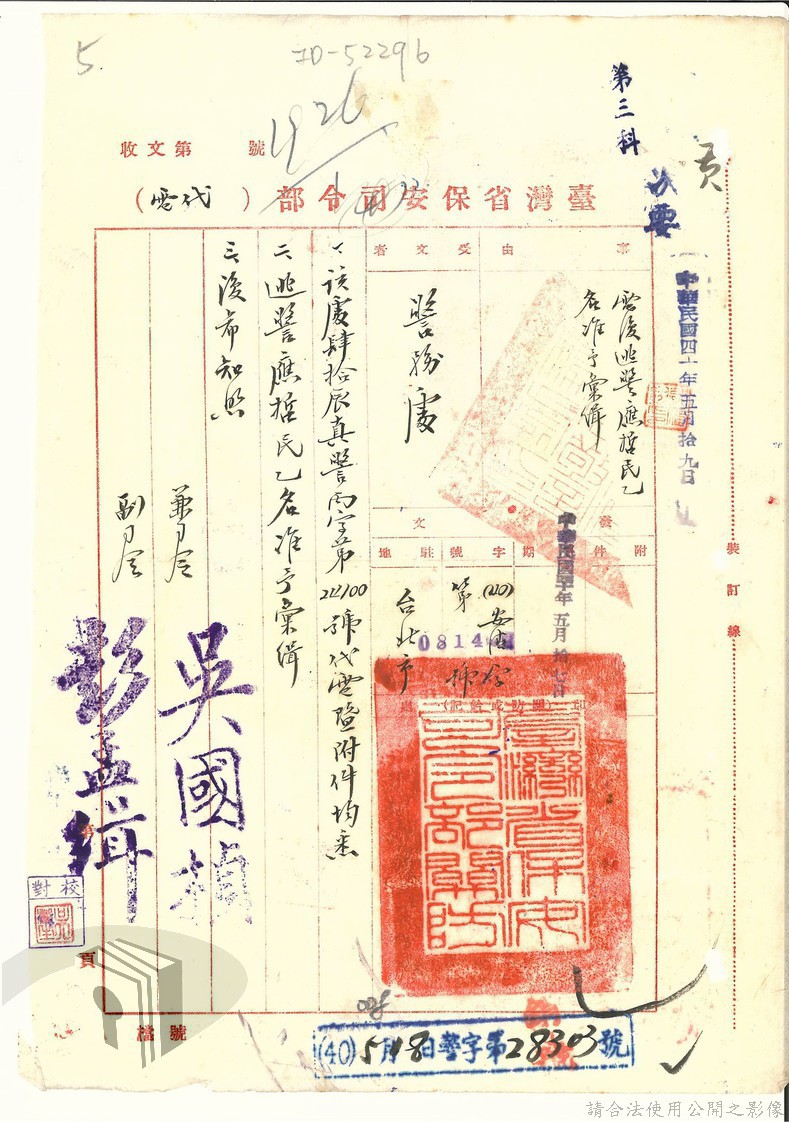 5.
1926
第三科
收文第 號
臺灣省保安司令部（代電）
中華民國四十年五月拾九日
事由
電復逃警應哲民乙
名准予彙緝
受文者
警務處
附件
發文
日期
字號
駐地
中華民國四十年五月拾七日
(40)安
第0814 號
台北市
臺灣省保安司令部關防
一、該處肆拾辰真警丙字第 號代電暨附件均悉
二、逃警應哲民乙名准予彙緝
三、復希知照
兼司令
吳國楨
副司令
彭孟緝
第
頁
校對
檔號
裝訂線
(40)5月18日警字第28303號
請合法使用公開之影像